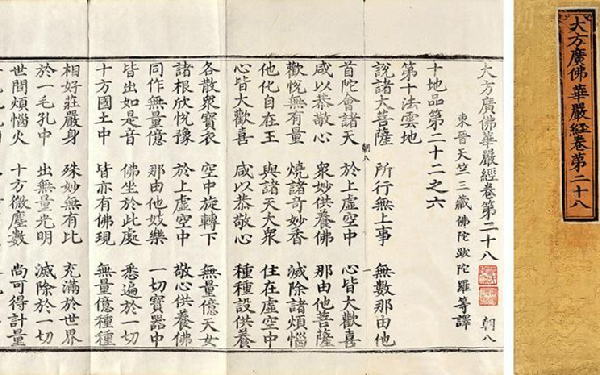 大方廣佛華嚴經卷第二十八
大方廣佛華嚴經卷第二十八 朝八
東晉天竺三藏佛陀跋陀羅等譯
十地品第二十二之六
第十法雲地
說諸大菩薩 所行無上事 無數那由他
首陀會諸天 於上虛空中 心皆大歡喜
咸以恭敬心 衆妙供養佛 那由他菩薩
歡悅無有量 燒諸奇妙香 滅除諸煩惱
他化自在王 與諸天大衆 住在虛空中
心皆大歡喜 咸以恭敬心 種種設供養
各散衆寶衣 空中旋轉下 無量億天女
諸根欣悅豫 於上虛空中 敬心供養佛
同作無量億 那由他妓樂 一切寶器中
皆出如是音 佛坐於此處 悉遍於一切
十方國土中 皆亦有佛現 無量億種種
相好莊嚴身 殊妙無有比 充滿於世界
於一毛孔中 出無量光明 滅除於一切
世間煩惱火 十方微塵數 尚可得計量